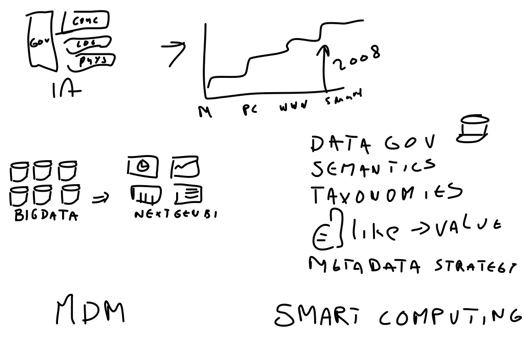 GOV
CONC
LOG
PHYS
IA
2008
M PC WWW SMART
DATA GOV
SEMANTICS
TAXONOMIES
like → VALUE
METADATA STRATEGY
BIGDATA ⇒ NEXTGEN BI
MDM
SMART COMPUTING